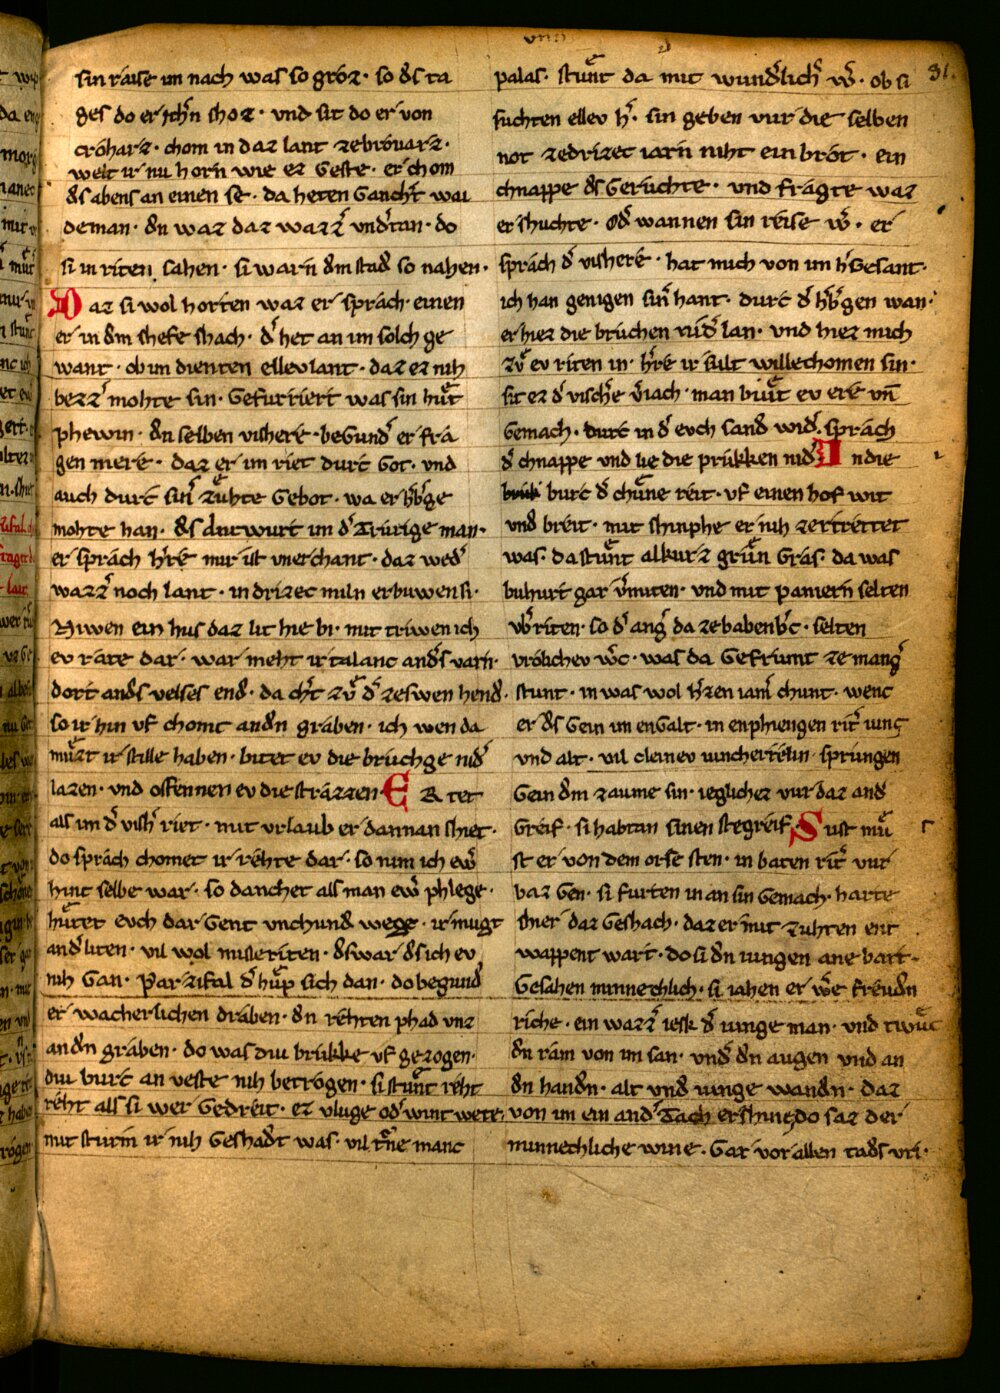 31.
sin raise im nach was so groz · so ds ta
ges do er ithn shoz · vnd sit do er von
croharz · chom in daz lant zebrovarz ·
welt ir nu horn wie ez Geste · er chom
ds abens an einen se · da heten Gancht wai
deman · dn waz daz wazz͛ vnd͛tan · do
si in riten sahen · si warn dm stad so nahen ·
Daz si wol horten waz er sprach · einen
er in dm shefe shach · d͛ het an im solch ge
want · ob im dienten ellev lant · daz ez nih
bezz͛ mohte sin · Gefurriert was sin hůt
phewin · dn selben vishere · beGund͛ er fra
gen mere · daz er im riet durc Got · vnd
auch durc sin͛ zůhte Gebot · wa er h͛b͛ge
mohte han · ds antwurt im d͛ Trurige man ·
er sprach h͛re mir ist vnerchant · daz wed͛
wazz͛ noch lant · in drizec miln erbuwen si ·
Niwen ein hus daz lit hie bi · mit triwen ich
ev rate dar · war meht ir talanc and͛s varn ·
dort and͛s velses end͛ · da ch͛t zů d͛ zeswen hend͛ ·
so ir hin vf chomt an dn graben · ich wen da
můzt ir stille haben · bitet ev die brucge nid͛
lazen · vnd offennen ev die strazzen Er tet
als im d͛ vish͛ riet · mit vrlaub er dannan shiet ·
do sprach chomet ir rehte dar · so nim ich ew͛
hint selbe war · so danchet als man ew͛ phlege ·
hůtet evch dar Gent vnchund͛ wege · ir mugt
and͛ liten · vil wol misseriten · dswar ds ich ev
nih Gan · Parzifal d͛ hůp sich dan · do begund͛
er wacherlichen draben · dn rehten phad vnz
an dn graben · do was div brukke vf gezogen ·
div burc an veste nih betrogen · si stůnt reht
reht als si wer Gedreit · ez vluge od͛ wint wete ·
mit sturm ir nih Geshadt was · vil t͛ne manc
palas · stůnt da mit wund͛lich͛ w͛ · ob si
suchten ellev h͛ · sin geben vur die selben
not zedrizec iarn niht ein brot · ein
chnappe ds Geruchte · vnd fragte waz
er shuchte · od͛ wannen sin reise w͛ · er
sprach d͛ vishere · hat mich von im h͛ Gesant ·
ich han genigen sin͛ hant · durc d͛ h͛b͛gen wan ·
er hiez die brucken nid͛ lan · vnd hiez mich
zů ev riten in · h͛re ir sult willechomen sin ·
sit ez d͛ vische͛ v͛iach · man biůt ev ere vn̄
Gemach · durc in d͛ evch sand͛ wid͛ · sprach
d͛ chnappe vnd lie die prukken nid͛ In die
burc d͛ chůne reit · vf einen hof wit
vnd breit · mit shinphe er nih zertrettet
was · da stůnt al kurz grůn Gras · da was
buhurt gar v͛miten · vnd mit paniern selten
vb͛riten · so d͛ ang͛ da ze babenb͛c · selten
vrolichev w͛c · was da Gefrumt ze mang͛
stunt · in was wol h͛zen iam͛ chunt · wenc
er ds Gein im enGalt · in enphiengen rit͛ iung
vnd alt · vil cleinev iuncherrelin · springen
Gein dm zaume sin · ieglichez vur daz and͛
Greif · si habtan sinen stegreif Sust mů
st er von dem orse sten · in baten rit͛ vur
baz Gen · si furten in an sin Gemach · harte
shier daz Geshach · daz er mit zuhten ent
wappent wart · do si dn iungen ane bart ·
Gesahen minnechlich · si iahen er w͛e freudn
riche · ein wazz͛ iesk d͛ iunge man · vnd twůc
dn ram von im san · vnd͛ dn augen vnd an
dn handn · alt vnd iunge wandn · daz
von im ein and͛ Tach ershine do saz der
minnechliche wine · Gar vor allen tad͛s vri ·